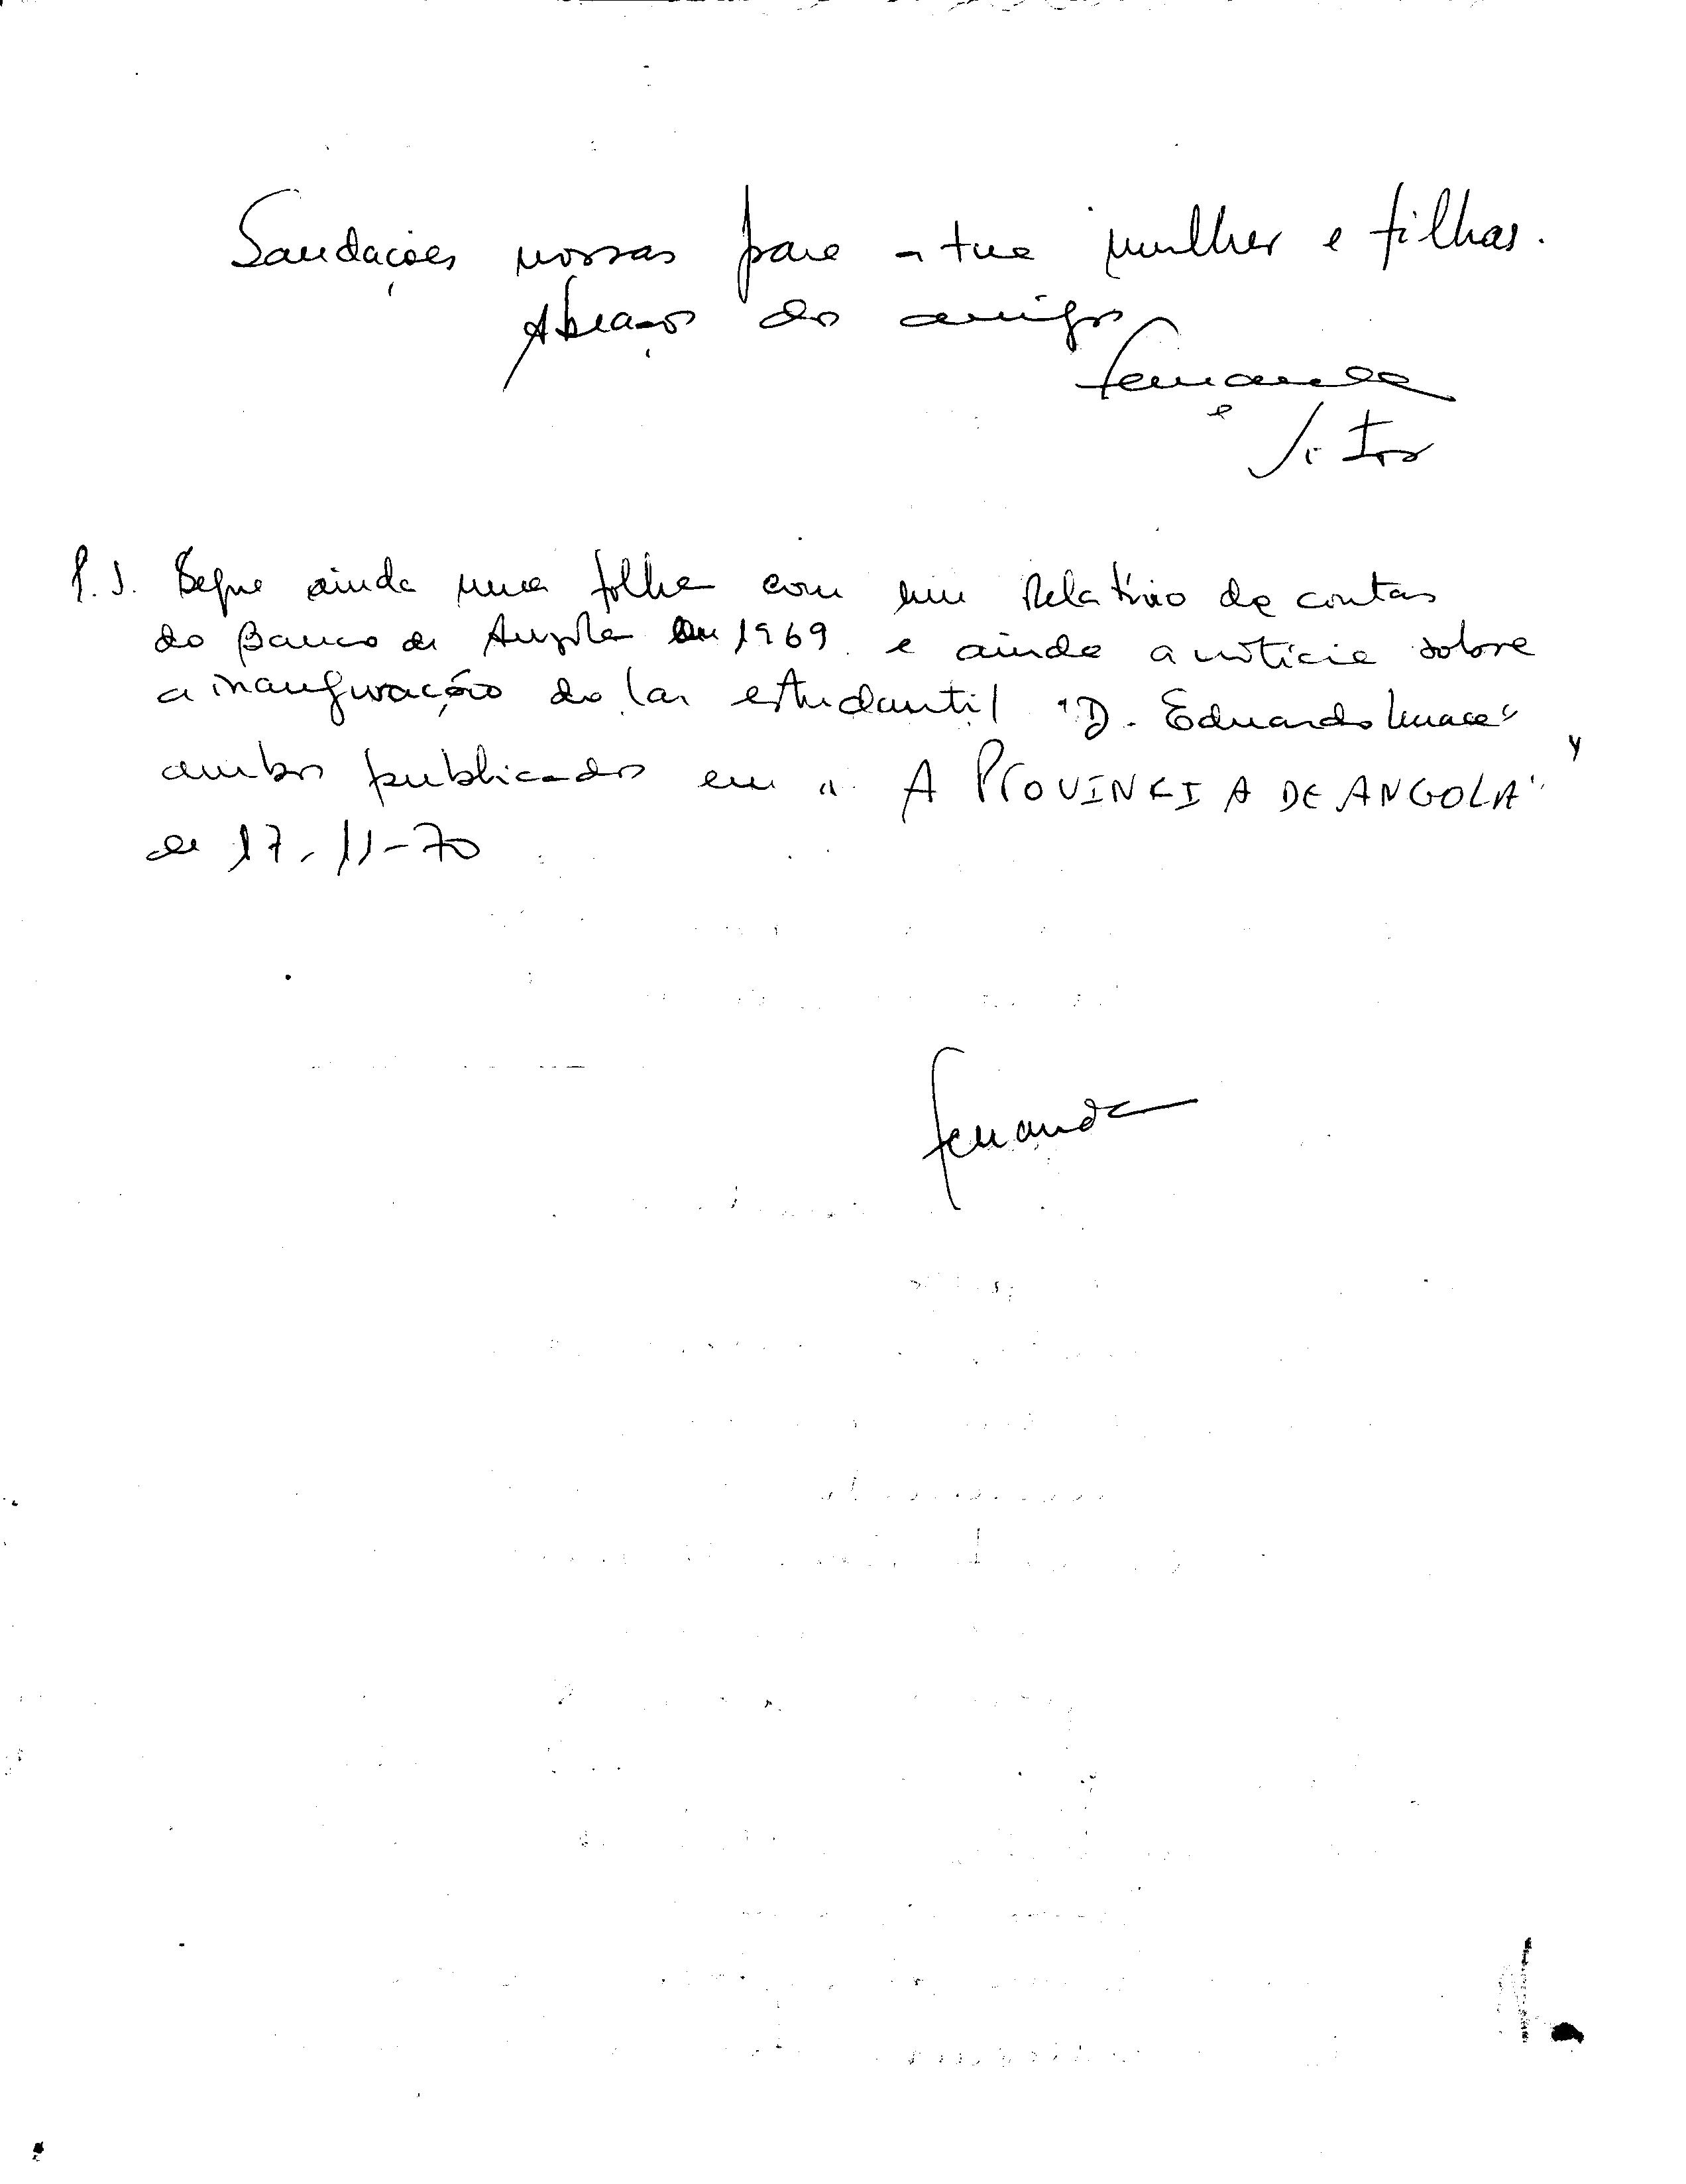 Saudações nossas para a tua mulher e filhas.
Abraços dos amigos
Fernanda
e
Vitor
P.S. Segue ainda uma folha com um Relatório de contas
do Banco de Angola em 1969 e ainda a notícia sobre
a inauguração do lar estudantil "D. Eduardo
ambos publicados em "A PROVINCIA DE ANGOLA"
de 17-11-70
Fernanda